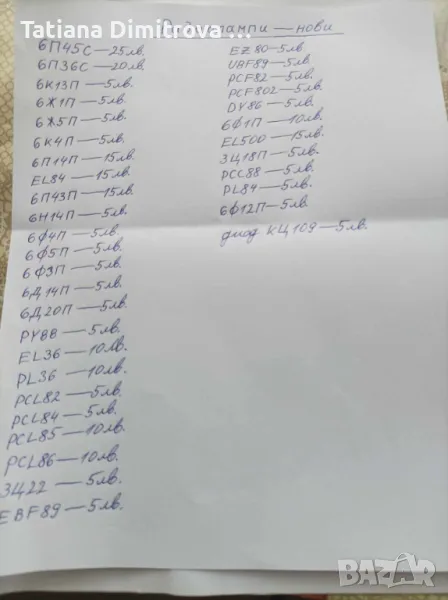 Tatiana Dimitrova ...
Радиолампи — нови
6П45С — 25лв.
6П36С — 20лв.
6К13П — 5лв.
6Ж1П — 5лв.
6Ж5П — 5лв.
6К4П — 5лв.
6П14П — 15лв.
EL84 — 15лв.
6П43П — 15лв.
6Н14П — 5лв.
6Ф4П — 5лв.
6Ф5П — 5лв.
6Ф3П — 5лв.
6Д14П — 5лв.
6Д20П — 5лв.
PY88 — 5лв.
EL36 — 10лв.
PL36 — 10лв.
PCL82 — 5лв.
PCL84 — 5лв.
PCL85 — 10лв.
PCL86 — 10лв.
3Ц22 — 5лв.
EBF89 — 5лв.
EZ80 — 5лв.
UBF89 — 5лв.
PCF82 — 5лв.
PCF802 — 5лв.
DY86 — 5лв.
6Ф1П — 10лв.
EL500 — 15лв.
3Ц18П — 5лв.
PCC88 — 5лв.
PL84 — 5лв.
6Ф12П — 5лв.
диод КЦ109 — 5лв.
BAZAR